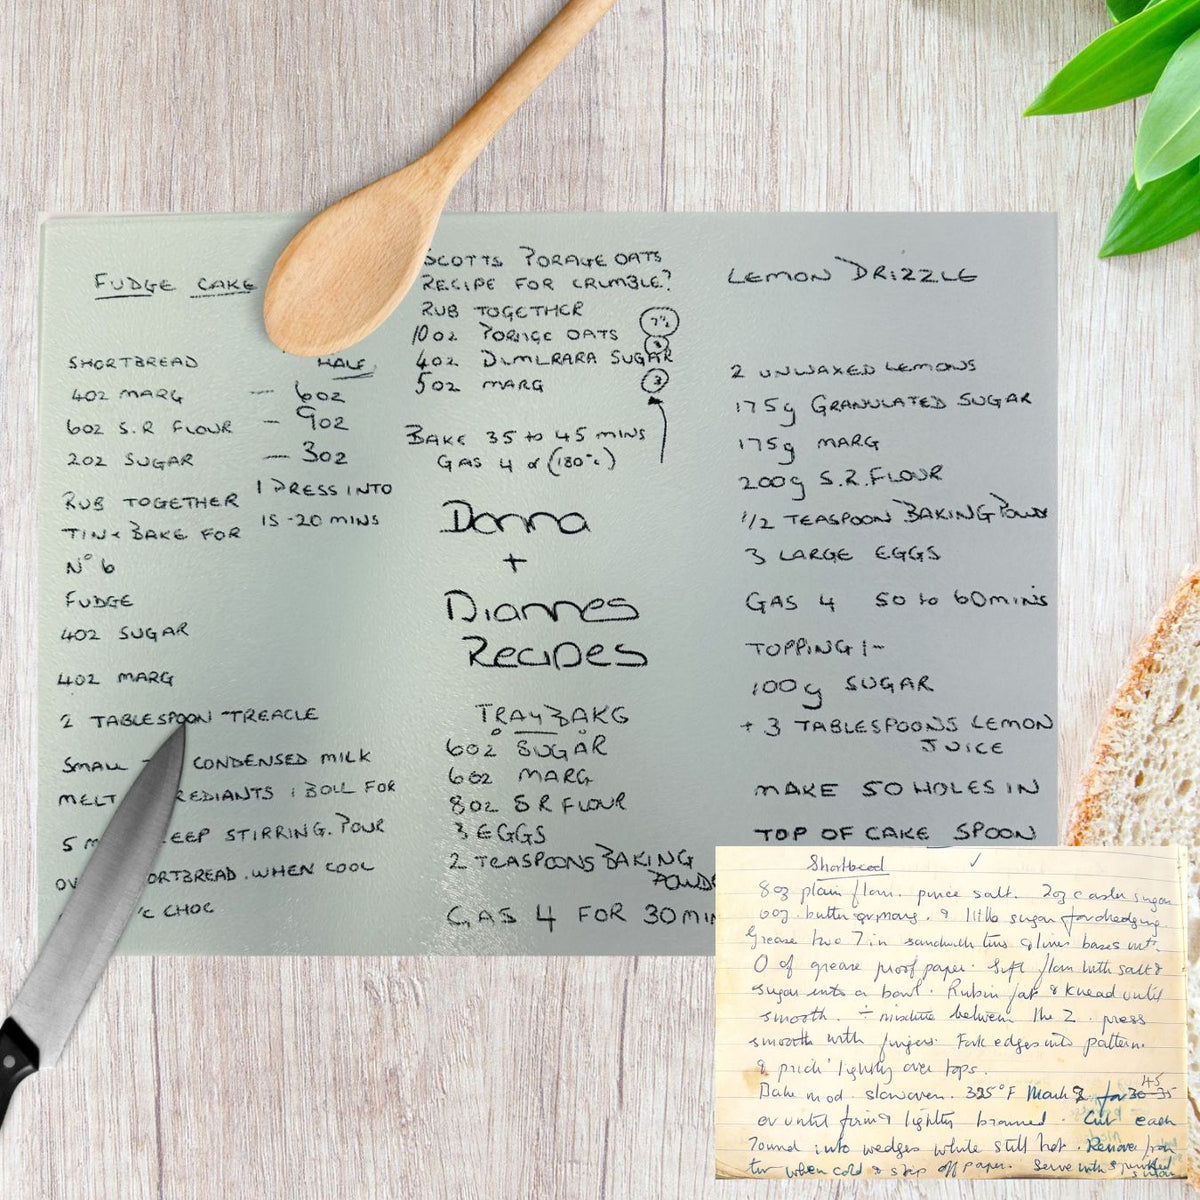 FUDGE CAKE
SHORTBREAD HALF
4OZ MARG — 6OZ
6OZ S.R FLOUR — 9OZ
2OZ SUGAR — 3OZ
RUB TOGETHER PRESS INTO
TIN + BAKE FOR 15-20 MINS
N° 6
FUDGE
4OZ SUGAR
4OZ MARG
2 TABLESPOON TREACLE
SMALL CONDENSED MILK
MELT BOIL FOR
5 STIRRING. POUR
WHEN COOL
CHOC
SCOTTS PORAGE OATS
RECIPE FOR CRUMBLE?
RUB TOGETHER
10OZ PORAGE OATS 7½
4OZ DEMERARA SUGAR
5OZ MARG 3
BAKE 35 to 45 MINS
GAS 4 or (180°c)
Donna
+
Diannes
Recipes
TRAYBAKE
6OZ SUGAR
6OZ MARG
8OZ S R FLOUR
3 EGGS
2 TEASPOONS BAKING
GAS 4 FOR 30
LEMON DRIZZLE
2 UNWAXED LEMONS
175g GRANULATED SUGAR
175g MARG
200g S.R. FLOUR
1/2 TEASPOON BAKING
3 LARGE EGGS
GAS 4 50 to 60 mins
TOPPING :-
100g SUGAR
+ 3 TABLESPOONS LEMON
JUICE
MAKE 50 HOLES IN
TOP OF CAKE SPOON
Shortbread ✓
8oz plain flour. pince salt. 2oz caster sugar
6oz butter or marg. & little sugar for dredging.
Grease two 7 in sandwich tins & line bases with
O of grease proof paper. Sift flour with salt &
sugar into a bowl. Rub in fat & knead until
smooth. ÷ mixture between the 2. press
smooth with fingers. Fork edges into pattern
& prick lightly over tops.
Bake mod. slow oven. 325°F Mark 2 for 30-35 45
or until firm & lightly browned. Cut each
round into wedges while still hot. Remove from
tin when cold & strip off paper. Serve with